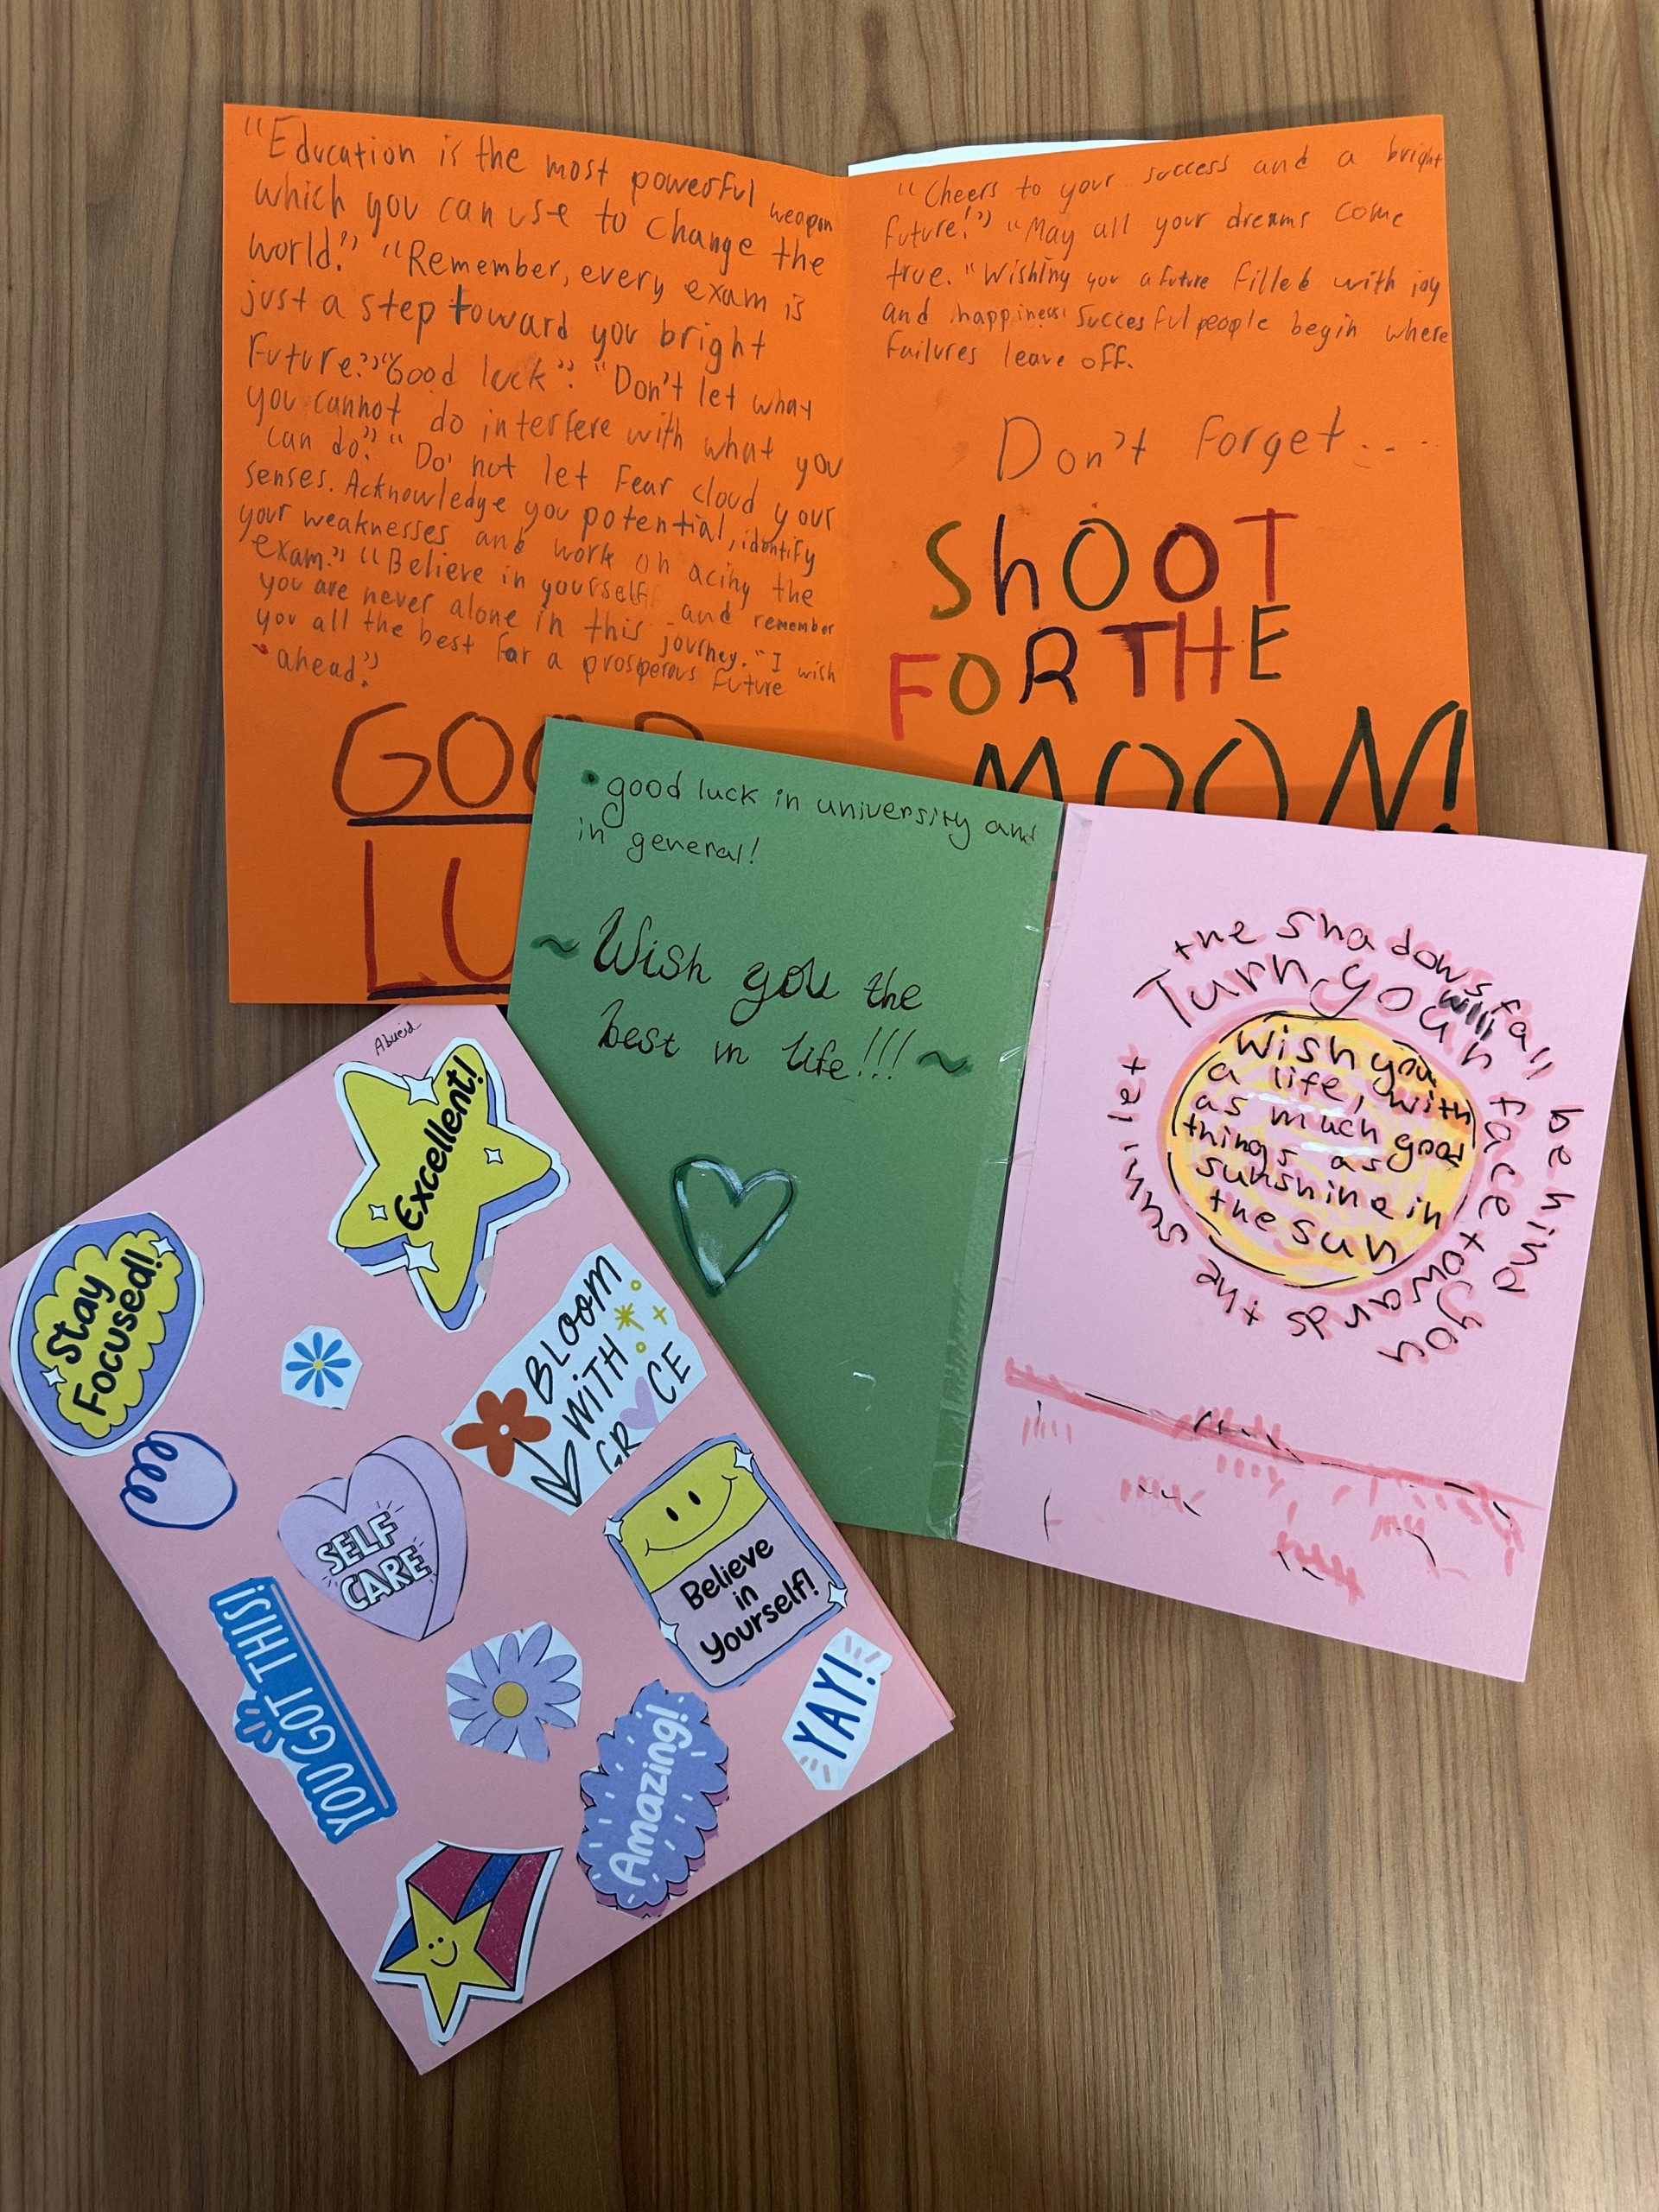 “Education is the most powerful weapon
which you can use to change the
world.” “Remember, every exam is
just a step toward you bright
future.” “Good luck”. “Don't let what
you cannot do interfere with what you
can do.” “Do not let fear cloud your
senses. Acknowledge you potential, identify
your weaknesses and work on acing the
exam.” “Believe in yourself and remember
you are never alone in this journey. “I wish
you all the best for a prosperous future
ahead”.
GOOD
LU
“Cheers to your success and a bright
future!” “May all your dreams come
true. “Wishing you a future filled with joy
and happiness. Succesful people begin where
failures leave off.
Don't forget....
ShOOT
FOR THE
MOON!
• good luck in university and
in general!
~ Wish you the
best in life!!! ~
Turn your face towards the sun, let
the shadows fall behind you
will
Wish you
a life, with
as much good
things as
sunshine in
the sun
Excellent!
Stay
Focused!
BLOOM
WITH
GRCE
SELF
CARE
Believe
in
Yourself!
YOU GOT THIS!
YAY!
Amazing!